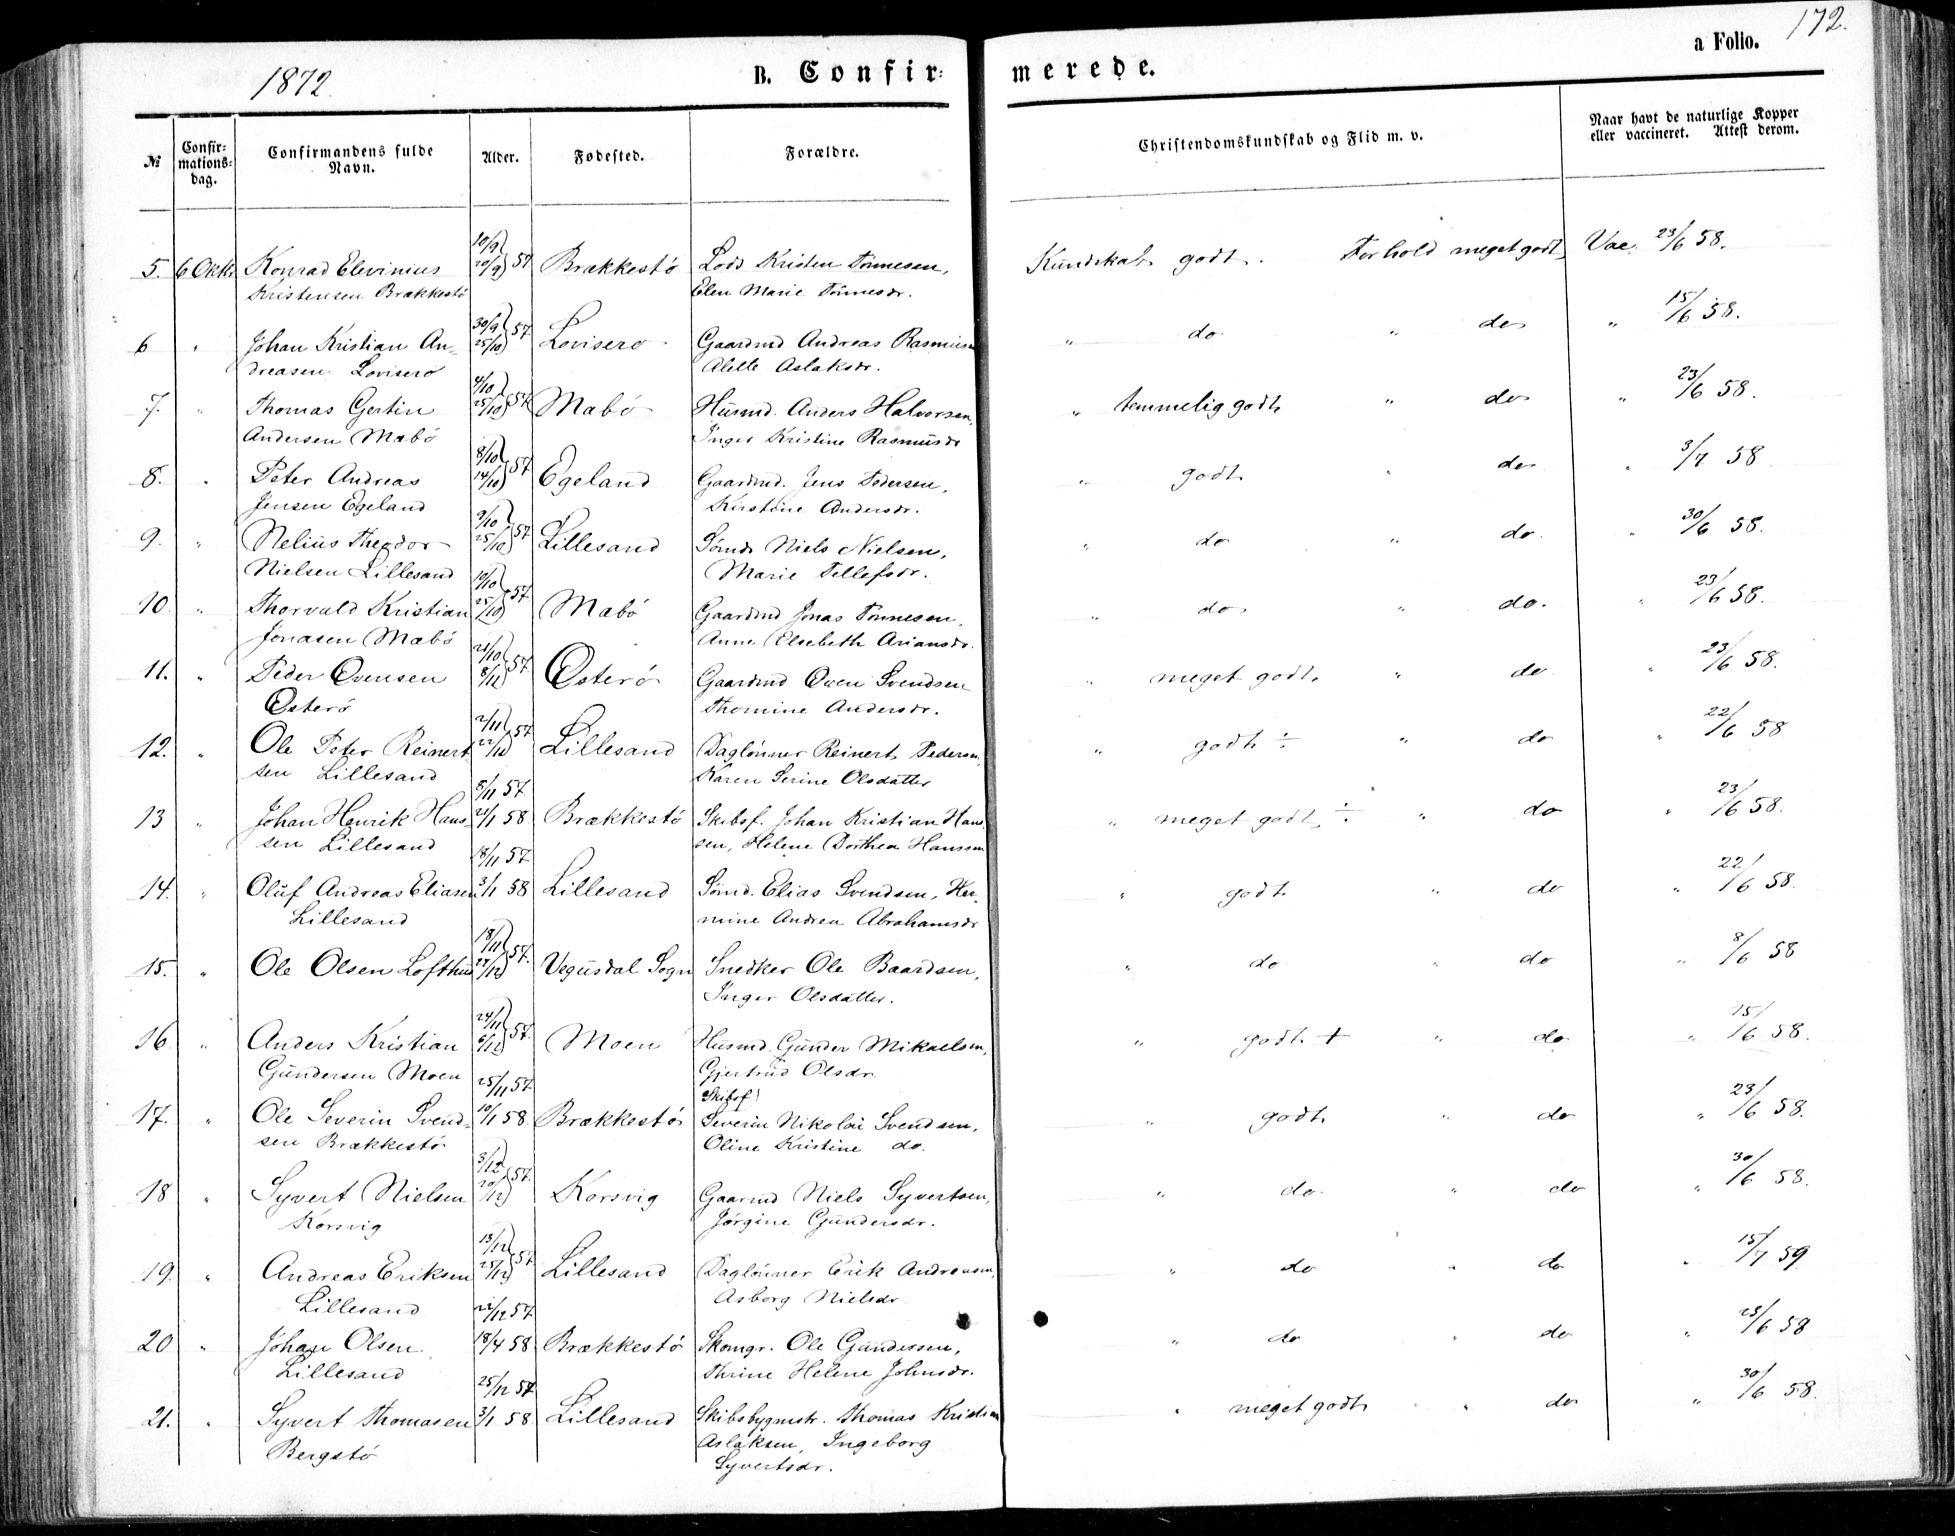 172.
a Folio.
1872.
B. Confir-
merede.
№
Confir-
mations-
dag.
Confirmandens fulde
Navn.
Alder.
Fødested.
Forældre.
Christendomskundskab og Flid m. v.
Naar havt de naturlige Kopper
eller vaccineret. Attest derom.
10/9
5. 6 Oktr. Konrad Elevinius 20/9 57 Brækkestø Lods Kristen Tønnesen, Kundskab godt. Forhold meget godt, Vac. 23/6 58.
Kristensen Brækkestø Elen Marie Tønnesdr.
30/9
6 " Johan Kristian An- 25/10 57 Loviserø Gaardmd Andreas Rasmusen " do " do " 15/6 58.
dreasen Loviserø Alette Aslaksdr.
4/10
7. " Thomas Gertin 25/10 57 Mæbø Husmd. Anders Halvorsen, " temmelig godt " do " 23/6 58.
Andersen Mæbø Inger Kristine Rasmusdr
8/10
8. " Peter Andreas 14/10 57 Egeland Gaardmd. Jens Pedersen, " godt " do " 3/7 58
Jensen Egeland Kirstine Andersdr.
9/10
9. " Nelius Theodor 25/10 57 Lillesand Sømd. Niels Nielsen, " do " do " 30/6 58.
Nielsen Lillesand Marie Tellefsdr.
10/10
10. " Thorvald Kristian 25/10 57 Mæbø Gaardmd Jonas Tønnesen, " do " do. " 23/6 58.
Jonasen Mæbø Anne Elsebeth Ariansdr.
21/10
11. " Peder Ovensen 8/11 57 Østerø Gaardmd Oven Svendsen " meget godt. " do " 23/6 58.
Østerø Thomine Andersdr.
2/11
12. " Ole Peter Reinert 22/11 57 Lillesand Daglønner Reinert Pedersen, " godt ÷ " do " 22/6 58
sen Lillesand Karen Serine Olsdatter
8/11 57
13 " Johan Henrik Hans- 24/1 58 Brækkestø Skibsf. Johan Kristian Han- " meget godt ÷ " do " 23/6 58.
sen Lillesand sen, Helene Dorthea Hanssen
18/11 57
14. " Oluf Andreas Eliasen 3/1 58 Lillesand Sømd. Elias Svendsen, Her- " godt " do " 22/6 58.
Lillesand mine Andrea Abrahamsdr
18/11
15. " Ole Olsen Lofthus 27/12 57. Vegusdal Sogn Snedker Ole Baardsen, " do " do " 8/6 58
Inger Olsdatter.
24/11
16 " Anders Kristian 6/12 57. Moen Husmd. Gunder Mikaelsen, " godt + " do " 15/6 58.
Gundersen Moen Gjertrud Olsdr.
25/11 57 Skibsf.
17. " Ole Severin Svend- 10/1 58 Brækkestø Severin Nikolai Svendsen, " godt " do " 23/6 58.
sen Brækkestø Oline Kristine do.
3/12
18 " Syvert Nielsen 20/12 57. Korsvig Gaarmd Niels Syvertsen, " do " do " 30/6 58.
Korsvig Jørgine Gundersdr.
13/12
19. " Andreas Eriksen 25/12 57 Lillesand Daglønner Erik Andreasen, " do " do " 15/7 59
Lillesand Asborg Nielsdr
22/12 57
20 " Johan Olsen 18/4 58 Brækkestø Skomgr. Ole Gundersen, " do " do " 25/6 58
Lillesand Thrine Helene Johnsdr.
25/12 57
21. " Syvert Thomasen 3/1 58 Lillesand Skibsbygmstr. Thomas Kristian " meget godt " do " 30/6 58.
Bergstø Aslaksen, Ingeborg
Syvertsdr.